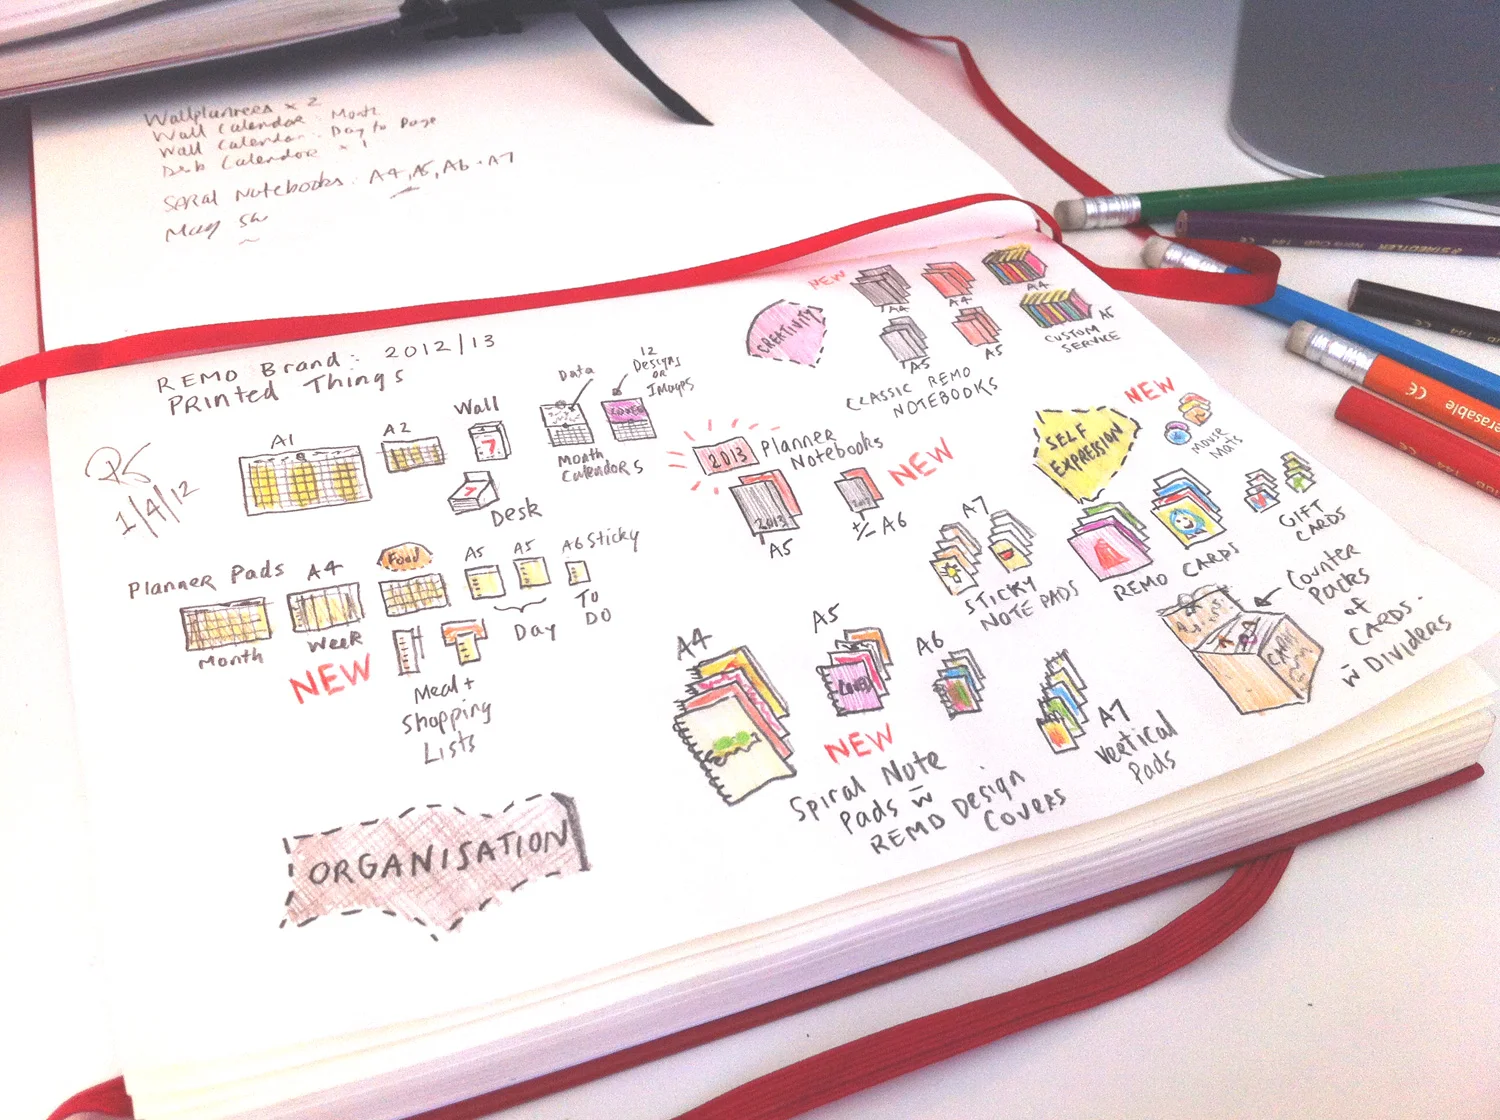 Wallplanners x 2
Wall Calendar: Month
Wall Calendar: Day to Page
Desk Calendar x 1
Notebooks: A4, A5, A6 + A7
May
REMO Brand: 2012/13
Printed Things
1/4/12
A1
A2
Wall
7
Desk
7
Data
12
Designs
or
Images
COVER
Month
Calendars
Planner Pads
Month
A4
Week
NEW
Food
A5
A5
Day
A6 Sticky
To
Do
Meal +
Shopping
Lists
ORGANISATION
CREATIVITY
NEW
A4
A4
A4
A5
A5
A5
CUSTOM
SERVICE
CLASSIC REMO
NOTEBOOKS
2013
Planner
Notebooks
NEW
2013
A5
2013
+/- A6
SELF
EXPRESSION
NEW
Mouse
Mats
A7
STICKY
NOTE PADS
REMO CARDS
GIFT
CARDS
Counter
Packs
of
CARDS
w̄ Dividers
CARDS
A4
A5
COVER
A6
NEW
Spiral Note
Pads w̄
REMO Design
Covers
A7
Vertical
Pads
STAEDTLER
CE
144
CE
erasable
CE
144